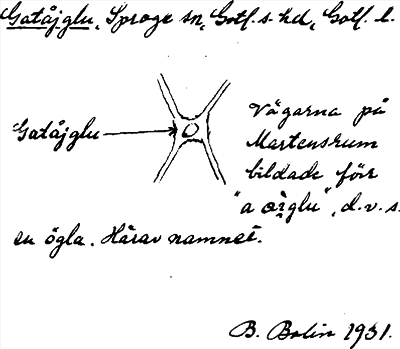 Gatåjglu, Sproge sn, Gotl. s. hd, Gotl. l.
Gatåjglu
Vägarna på
Martensrum
bildade förr
"a ojglu", d.v.s.
en ögla. Härav namnet.
B. Bolin 1931.